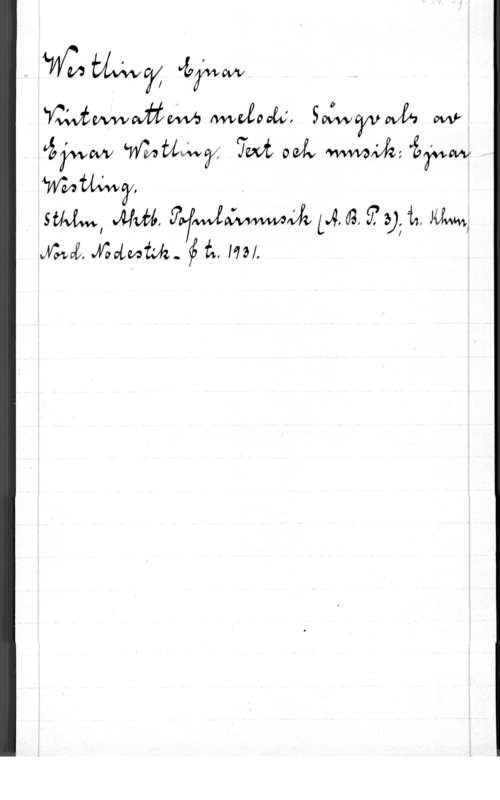 Westling, Ejnar
Vinternattens melodi. Sångvals av
Ejnar Westling. Text och musik: Ejnar
Westling.
Sthlm, Aktb. Populärmusik (A.B.P. 3); tr. Khvn,
Nord. Nodestik- tr. 1931.